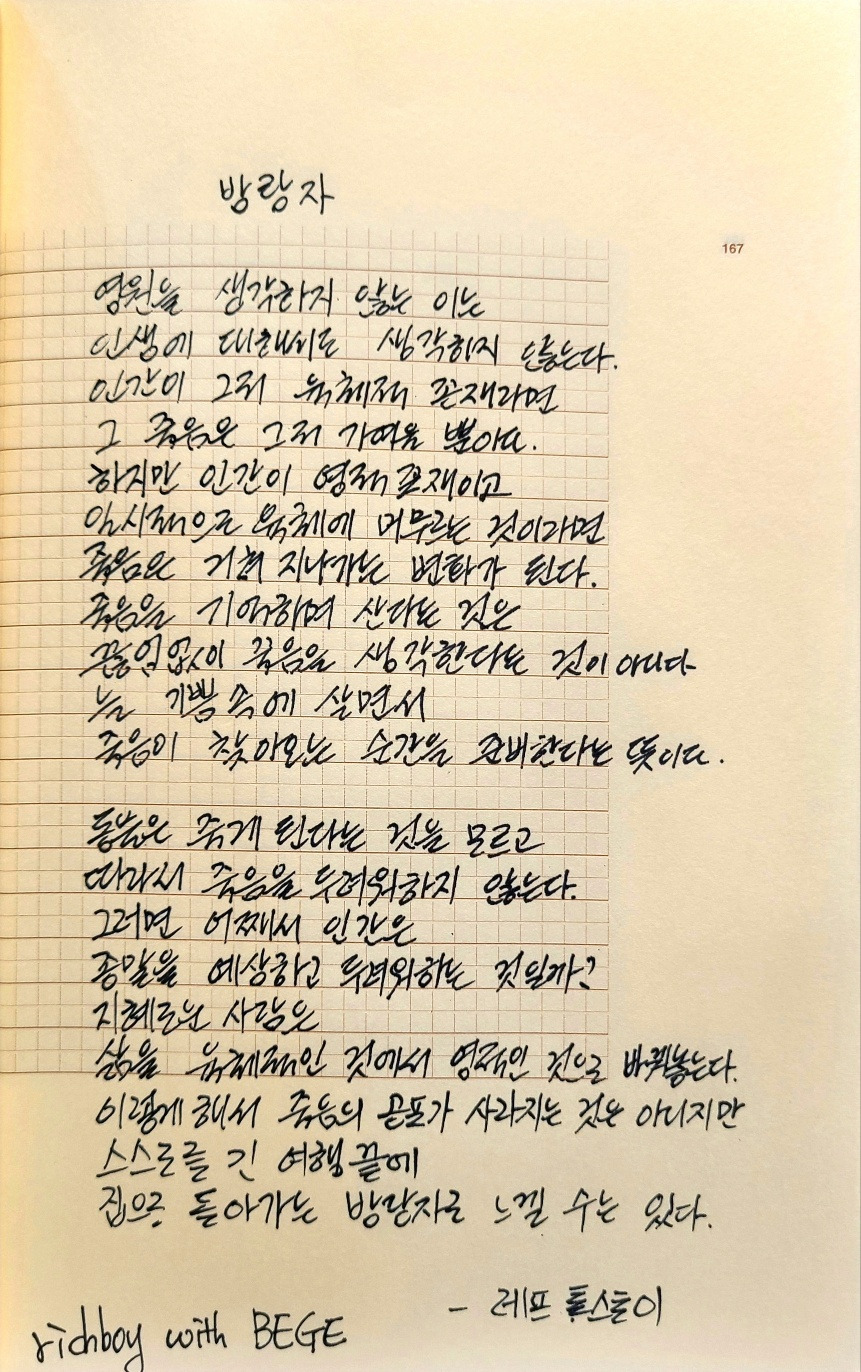 방랑자
167
영원을 생각하지 않는 이는
인생에 대해서도 생각하지 않는다.
인간이 그저 육체적 존재라면
그 죽음은 그저 가여울 뿐이다.
하지만 인간이 영적 존재이고
일시적으로 육체에 머무르는 것이라면
죽음은 거쳐 지나가는 변화가 된다.
죽음을 기억하며 산다는 것은
끊임없이 죽음을 생각한다는 것이 아니다
늘 기쁨 속에 살면서
죽음이 찾아오는 순간을 준비한다는 뜻이다.
동물은 죽게 된다는 것을 모르고
따라서 죽음을 두려워하지 않는다.
그러면 어째서 인간은
종말을 예상하고 두려워하는 것일까?
지혜로운 사람은
삶을 육체적인 것에서 영적인 것으로 바꿔놓는다.
이렇게 해서 죽음의 공포가 사라지는 것은 아니지만
스스로를 긴 여행 끝에
집으로 돌아가는 방랑자로 느낄 수는 있다.
- 레프 톨스토이
richboy with BEGE